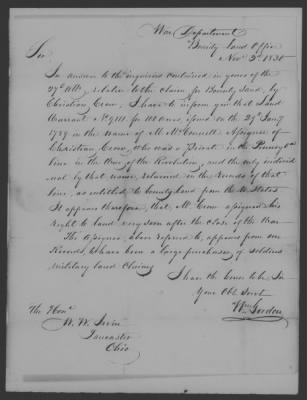 War Department
Bounty Land Office
Novr 2d 1830
Sir
In answer to the inquiries contained in yours of the
27th Ulto, relative to the claim for Bounty Land, by
Christian Crow, I have to inform you that Land
Warrant No 9111 for 100 acres, issued on the 29 Jany
1789 in the name of M. McConnell Assignee of
Christian Crow, who was a Private in the Pennsya
line in the War of the Revolution, and the only individ-
ual by that name, returned in the records of that
line, as entitled to bounty land from the U. States
It appears therefore, that Mr Crow assigned his
right to land very soon after the close of the War.
The Assignee, above referred to, appears from our
Records, to have been a large purchaser of soldiers
military land claims
I have the honor to be Sir
Your Obt Servt
Wm Gordon
The Honl
W. W. Irvin
Lancaster
Ohio